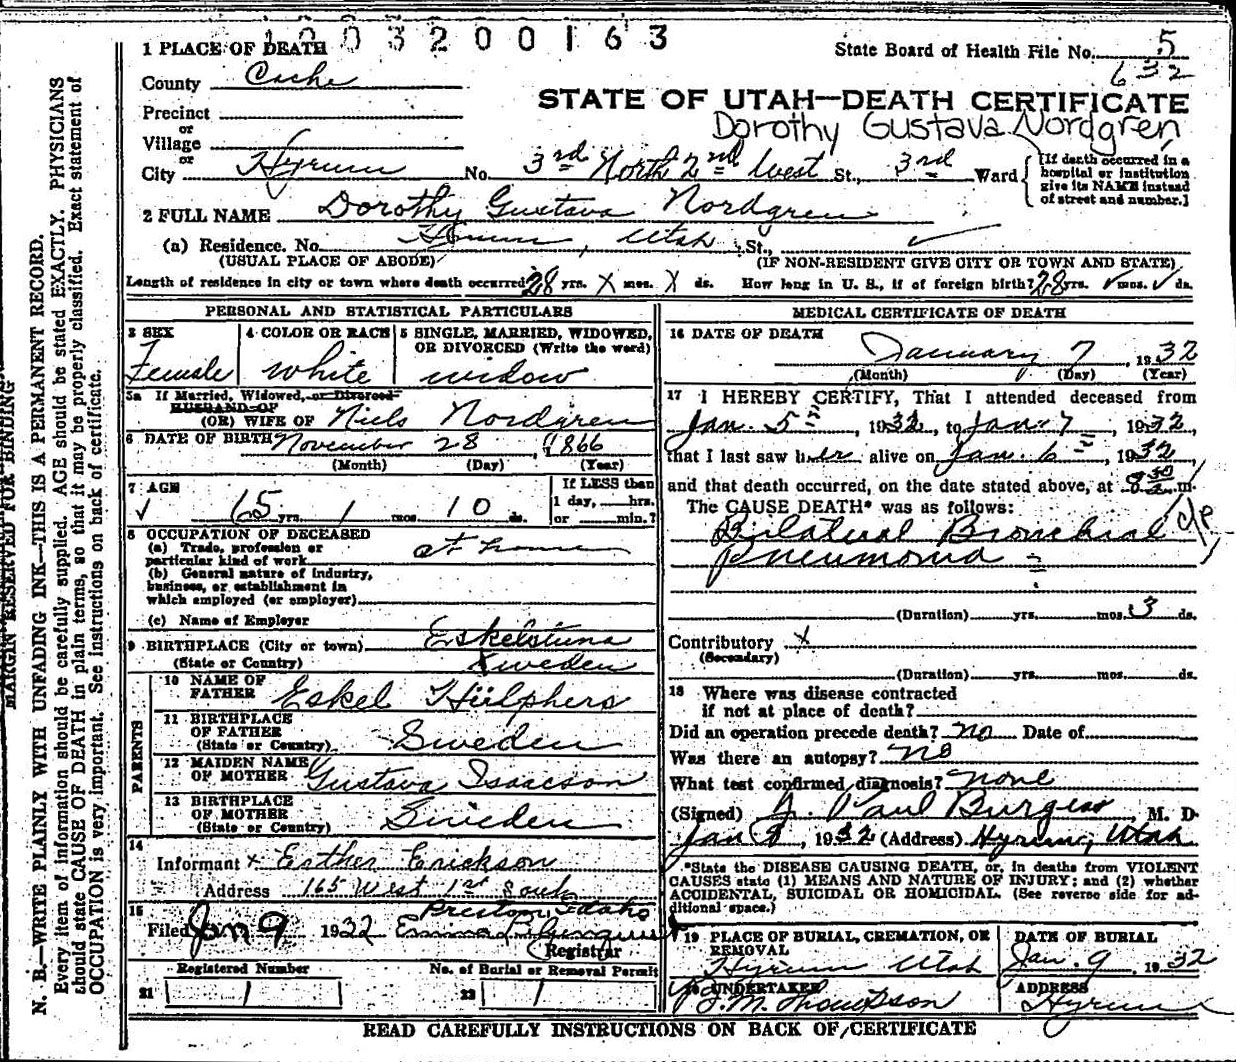 1003200163
1 PLACE OF DEATH
State Board of Health File No. 5
632
County Cache
STATE OF UTAH—DEATH CERTIFICATE
Precinct
or
Dorothy Gustava Nordgren
Village
or
City Hyrum No. 3rd North 2nd West St., 3rd Ward
[If death occurred in a
hospital or institution
give its NAME instead
of street and number.]
2 FULL NAME Dorothy Gustava Nordgren
(a) Residence. No. Hyrum, Utah St.,
(USUAL PLACE OF ABODE) (IF NON-RESIDENT GIVE CITY OR TOWN AND STATE)
Length of residence in city or town where death occurred 28 yrs. X mos. X ds. How long in U. S., if of foreign birth? 28 yrs. ✓ mos. ✓ ds.
PERSONAL AND STATISTICAL PARTICULARS
3 SEX
Female
4 COLOR OR RACE
white
5 SINGLE, MARRIED, WIDOWED,
OR DIVORCED (Write the word)
widow
5a If Married, Widowed, or Divorced
HUSBAND OF
(OR) WIFE OF Niels Nordgren
6 DATE OF BIRTH November 28, 1866
(Month) (Day) (Year)
7 AGE
✓ 65 yrs. 1 mos. 10 ds.
If LESS than
1 day, hrs.
or min.?
8 OCCUPATION OF DECEASED
(a) Trade, profession or
particular kind of work at home
(b) General nature of industry,
business, or establishment in
which employed (or employer)
(c) Name of Employer
9 BIRTHPLACE (City or town) Eskelstuna
(State or Country) Sweden
PARENTS
10 NAME OF
FATHER Eskel Hülphers
11 BIRTHPLACE
OF FATHER
(State or Country) Sweden
12 MAIDEN NAME
OF MOTHER Gustava Isaacson
13 BIRTHPLACE
OF MOTHER
(State or Country) Sweden
14
Informant x Esther Erickson
Address 165 West 1st South
Preston, Idaho
15
Filed Jan 9 1932 Emma
Registrar
Registered Number No. of Burial or Removal Permit
21 22
MEDICAL CERTIFICATE OF DEATH
16 DATE OF DEATH
January 7 1932
(Month) (Day) (Year)
17 I HEREBY CERTIFY, That I attended deceased from
Jan. 5, 1932, to Jan. 7, 1932
that I last saw her alive on Jan. 6, 1932
and that death occurred, on the date stated above, at 8 30 a m.
The CAUSE DEATH* was as follows:
Bilateral Bronchial
Pneumonia
(Duration) yrs. mos. 3 ds.
Contributory x
(Secondary)
(Duration) yrs. mos. ds.
18 Where was disease contracted
if not at place of death?
Did an operation precede death? no Date of
Was there an autopsy? no
What test confirmed diagnosis? none
(Signed) J. Paul Burgess, M. D.
Jan 8, 1932 (Address) Hyrum, Utah
*State the DISEASE CAUSING DEATH, or, in deaths from VIOLENT
CAUSES state (1) MEANS AND NATURE OF INJURY; and (2) whether
ACCIDENTAL, SUICIDAL OR HOMICIDAL. (See reverse side for ad-
ditional space.)
19 PLACE OF BURIAL, CREMATION, OR
REMOVAL
Hyrum Utah
DATE OF BURIAL
Jan. 9, 1932
20 UNDERTAKER
J. M. Thompson
ADDRESS
Hyrum
READ CAREFULLY INSTRUCTIONS ON BACK OF CERTIFICATE
MARGIN RESERVED FOR BINDING
N. B.—WRITE PLAINLY WITH UNFADING INK—THIS IS A PERMANENT RECORD.
Every item of information should be carefully supplied. AGE should be stated EXACTLY. PHYSICIANS
should state CAUSE OF DEATH in plain terms, so that it may be properly classified. Exact statement of
OCCUPATION is very important. See instructions on back of certificate.